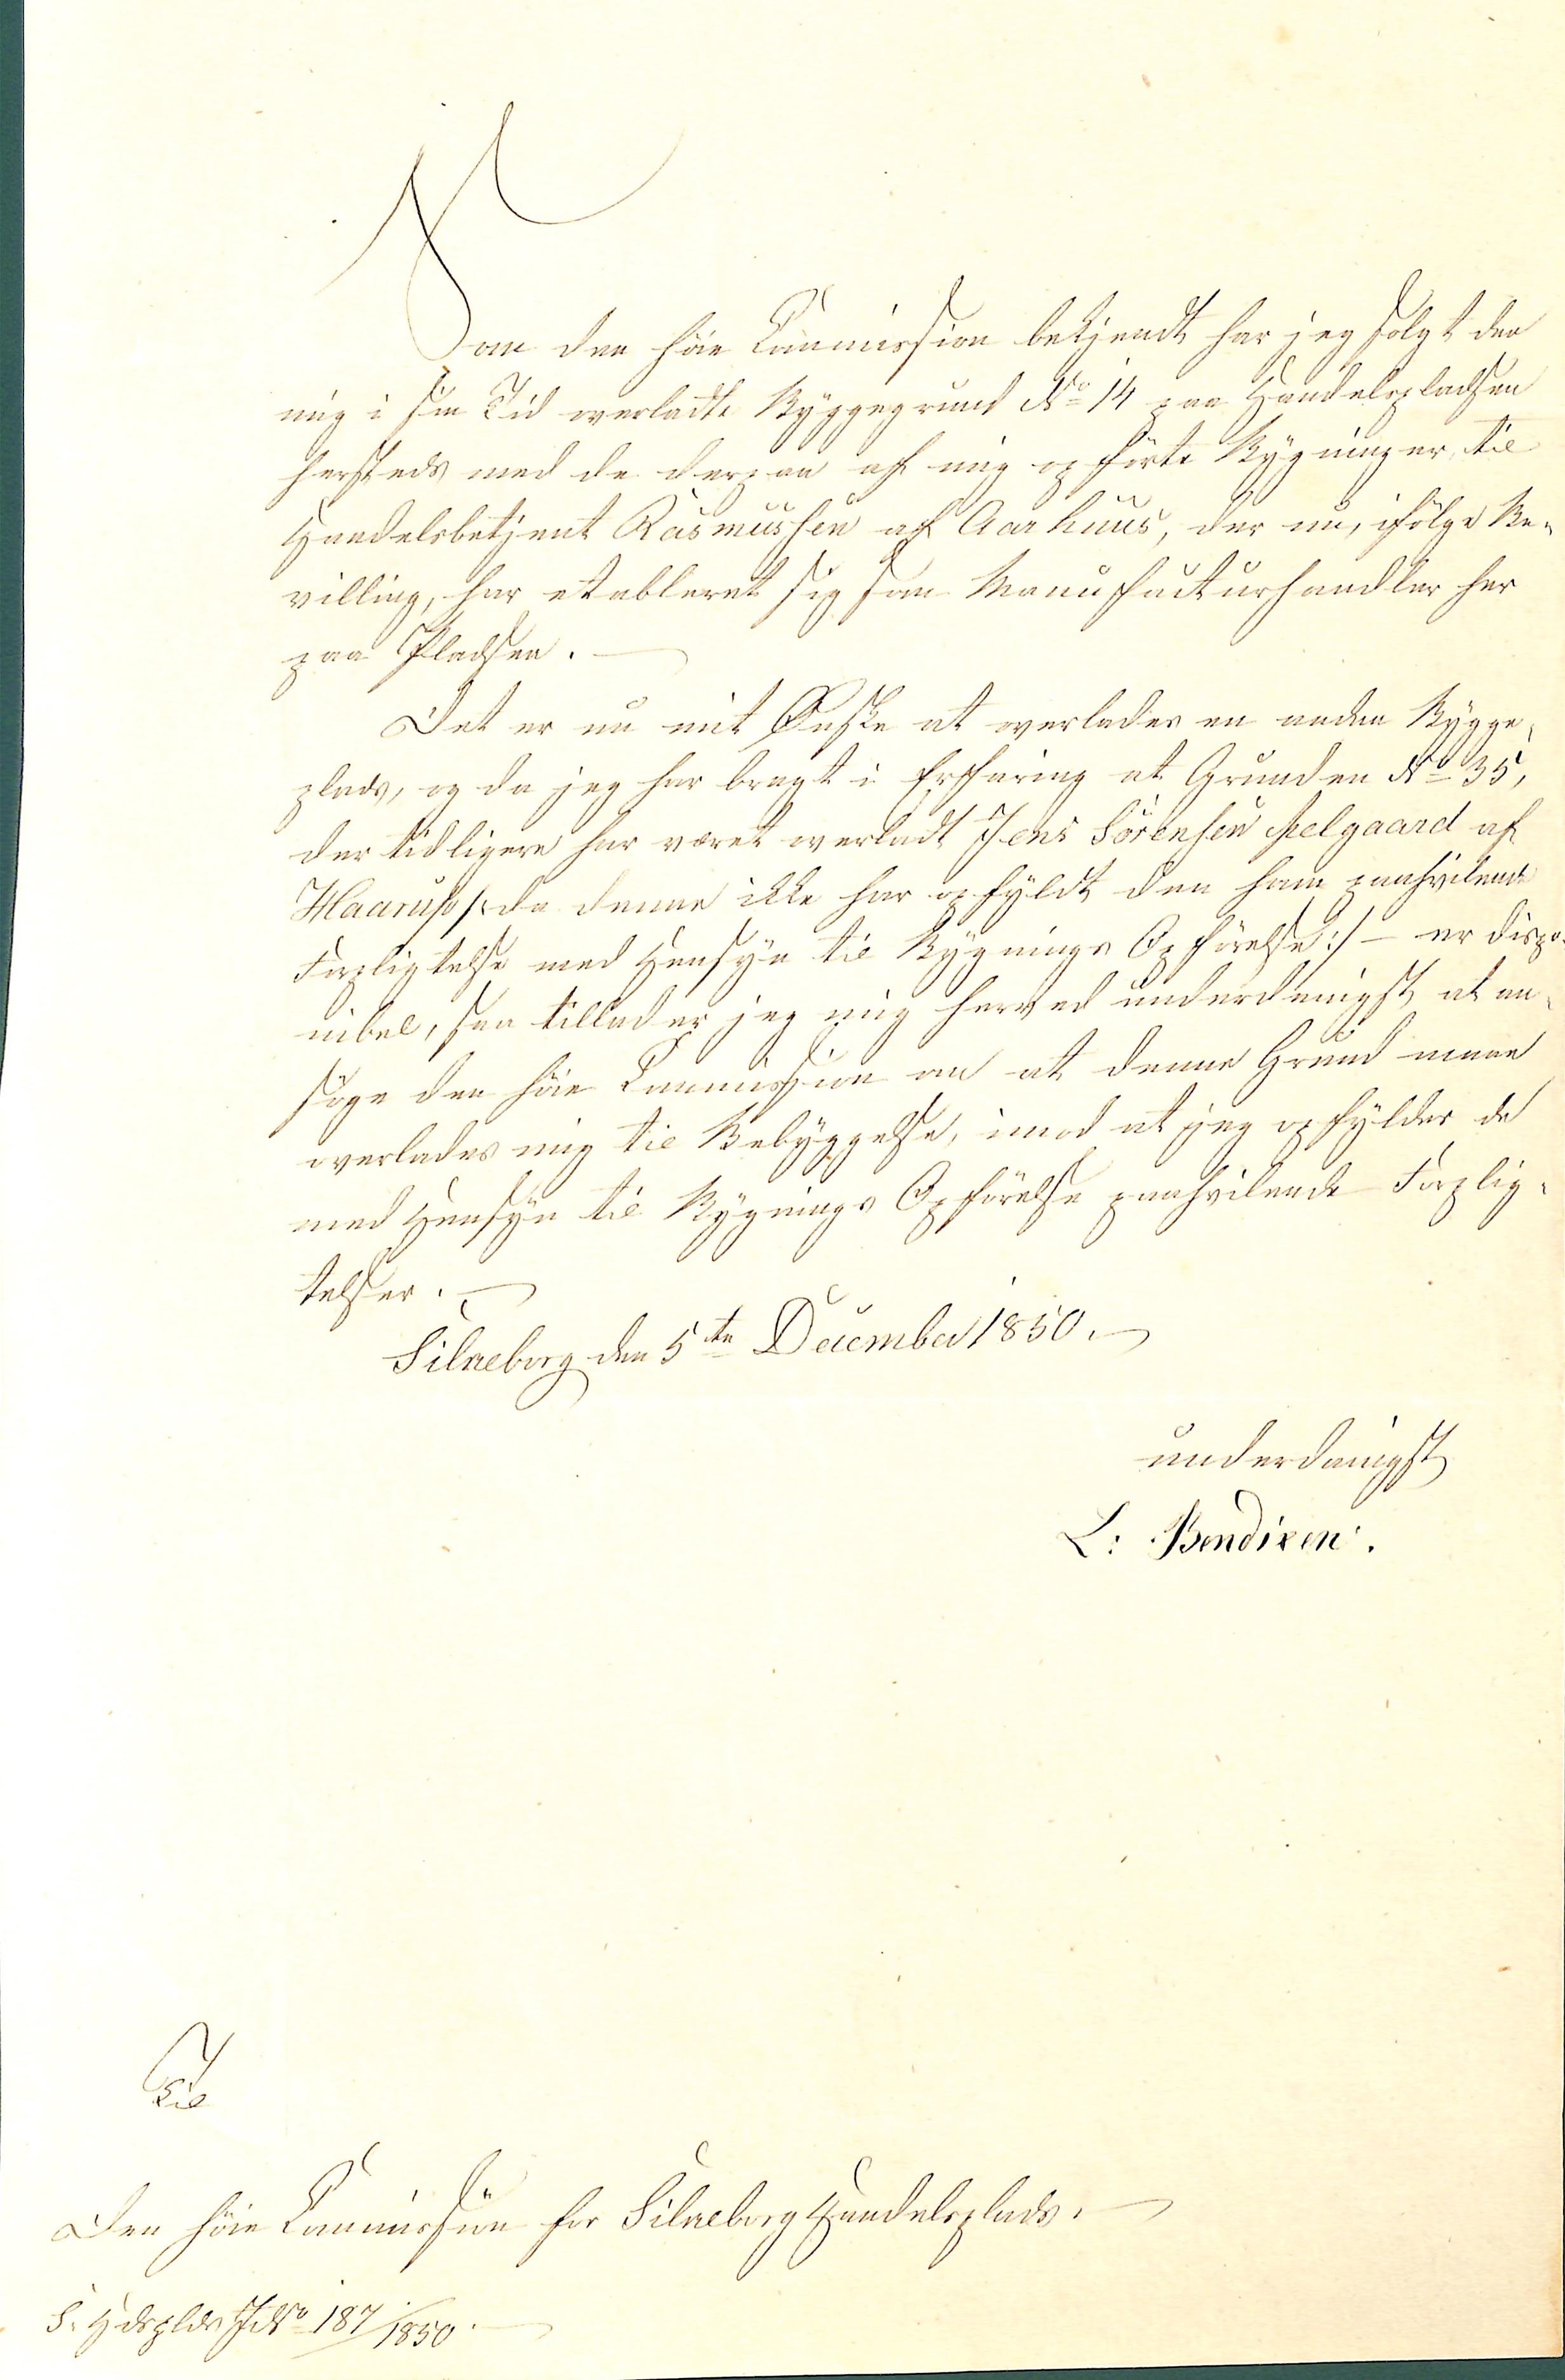 Som den höie Commission bekjendt har jeg solgt den
mig i sin Tid overladte Byggegrund No 14 paa Handelspladsen
hersteds med de derpaa af mig opförte Bygninger, til
Handelsbetjent Rasmussen af Aarhuus, der nu, ifölge Be-
villing, har etableret sig som Manufacturhandler her
paa Pladsen. —
Det er nu mit Ønske at overlades en anden Bygge-
plads, og da jeg har bragt i Erfaring at Grunden No 35,
der tidligere har været overladt Jens Sörensen Aelgaard af
Haarup /: da denne ikke har opfyldt den ham paahvilende
Forpligtelse med Hensyn til Bygnings Opförelse :/ — er dispo-
nibel, saa tillader jeg mig herved underdanigst at an-
söge den höie Commission om at denne Grund maae
overlades mig til Bebyggelse, imod at jeg opfylder de
med Hensyn til Bygnings Opförelse paahvilende Forplig-
telser. —
Silkeborg den 5te December 1850. —
underdanigst
L: Bendixen.
Til
Den höie Commission for Silkeborg Handelsplads. —
S. Hdsplds J No 187/1850. —